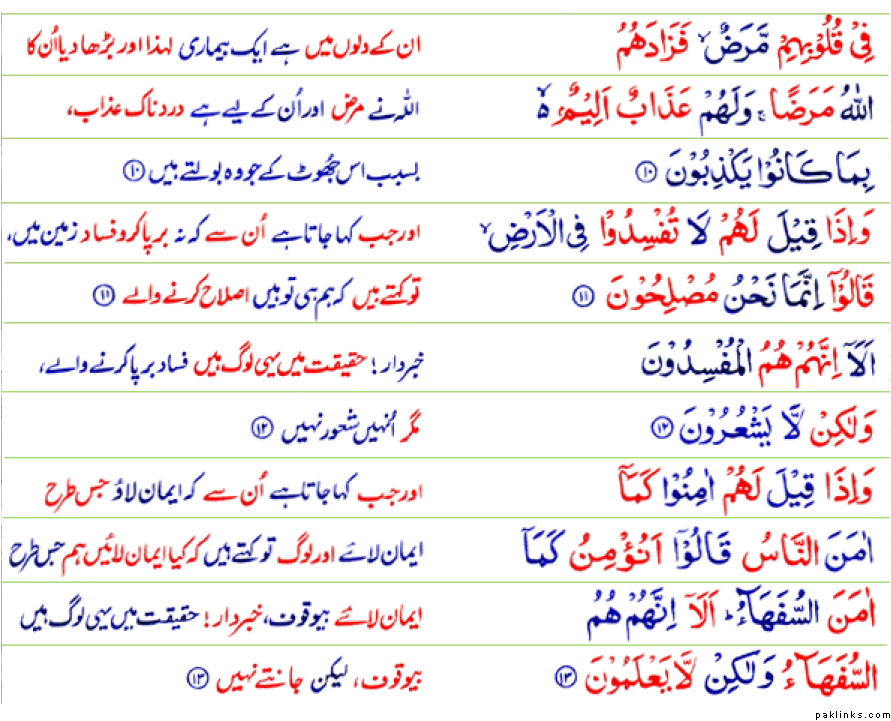 فِیۡ قُلُوۡبِہِمۡ مَّرَضٌ ۙ فَزَادَہُمُ
ان کے دلوں میں ہے ایک بیماری لہذا اور بڑھا دیا اُن کا
اللّٰہُ مَرَضًا ۚ وَلَہُمۡ عَذَابٌ اَلِیۡمٌۢ ۬ۙ
اللہ نے مرض اور اُن کے لیے ہے دردناک عذاب،
بِمَا کَانُوۡا یَکۡذِبُوۡنَ ﴿۱۰﴾
بسبب اس جھُوٹ کے جو وہ بولتے ہیں ﴿۱۰﴾
وَاِذَا قِیۡلَ لَہُمۡ لَا تُفۡسِدُوۡا فِی الۡاَرۡضِ ۙ
اور جب کہا جاتا ہے اُن سے کہ نہ برپا کرو فساد زمین میں،
قَالُوۡۤا اِنَّمَا نَحۡنُ مُصۡلِحُوۡنَ ﴿۱۱﴾
تو کہتے ہیں کہ ہم ہی تو ہیں اصلاح کرنے والے ﴿۱۱﴾
اَلَاۤ اِنَّہُمۡ ہُمُ الۡمُفۡسِدُوۡنَ
خبردار! حقیقت میں یہی لوگ ہیں فساد برپا کرنے والے،
وَلٰکِنۡ لَّا یَشۡعُرُوۡنَ ﴿۱۲﴾
مگر اُنہیں شعور نہیں ﴿۱۲﴾
وَاِذَا قِیۡلَ لَہُمۡ اٰمِنُوۡا کَمَاۤ
اور جب کہا جاتا ہے اُن سے کہ ایمان لاؤ جس طرح
اٰمَنَ النَّاسُ قَالُوۡۤا اَنُؤۡمِنُ کَمَاۤ
ایمان لائے اور لوگ تو کہتے ہیں کہ کیا ایمان لائیں ہم جس طرح
اٰمَنَ السُّفَہَآءُ ؕ اَلَاۤ اِنَّہُمۡ ہُمُ
ایمان لائے بیوقوف، خبردار! حقیقت میں یہی لوگ ہیں
السُّفَہَآءُ وَلٰکِنۡ لَّا یَعۡلَمُوۡنَ ﴿۱۳﴾
بیوقوف، لیکن جانتے نہیں ﴿۱۳﴾
paklinks.com